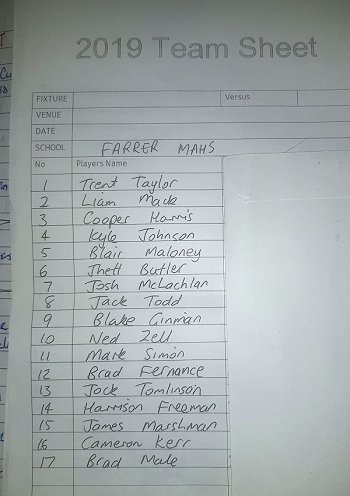 2019 Team Sheet
FIXTURE Versus
VENUE
DATE
SCHOOL FARRER MAHS
No Players Name
1 Trent Taylor
2 Liam Made
3 Cooper Harris
4 Kyle Johnson
5 Blair Maloney
6 Jhett Butler
7 Josh McLachlan
8 Jack Todd
9 Blake Ginman
10 Ned Zell
11 Mark Simon
12 Brad Fernance
13 Jock Tomlinson
14 Harrison Freeman
15 James Marshman
16 Cameron Kerr
17 Brad Male